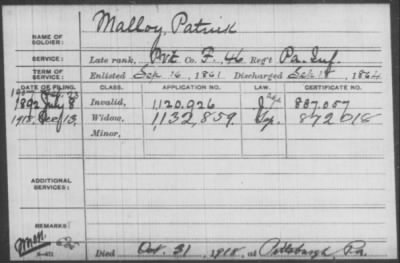 Malloy, Patrick
NAME OF SOLDIER:
SERVICE: Late rank, Pvt. Co. F, 46 Reg't Pa. Inf.
TERM OF SERVICE: Enlisted Sep. 16, 1861 Discharged Sep. 18, 1864
DATE OF FILING. CLASS. APPLICATION NO. LAW. CERTIFICATE NO.
1892 July 8 Invalid, 1,120,926 887,057
1918, Dec 13. Widow, 1,132,859 872018
Minor,
ADDITIONAL SERVICES:
REMARKS:
Died Oct. 31, 1918, at Pittsburgh, Pa.